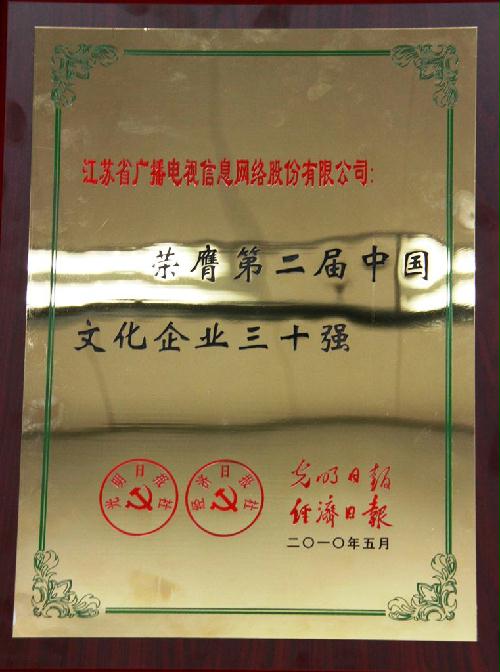 江苏省广播电视信息网络股份有限公司:
荣膺第二届中国
文化企业三十强
光明日报社
经济日报社
光明日報
經濟日報
二〇一〇年五月